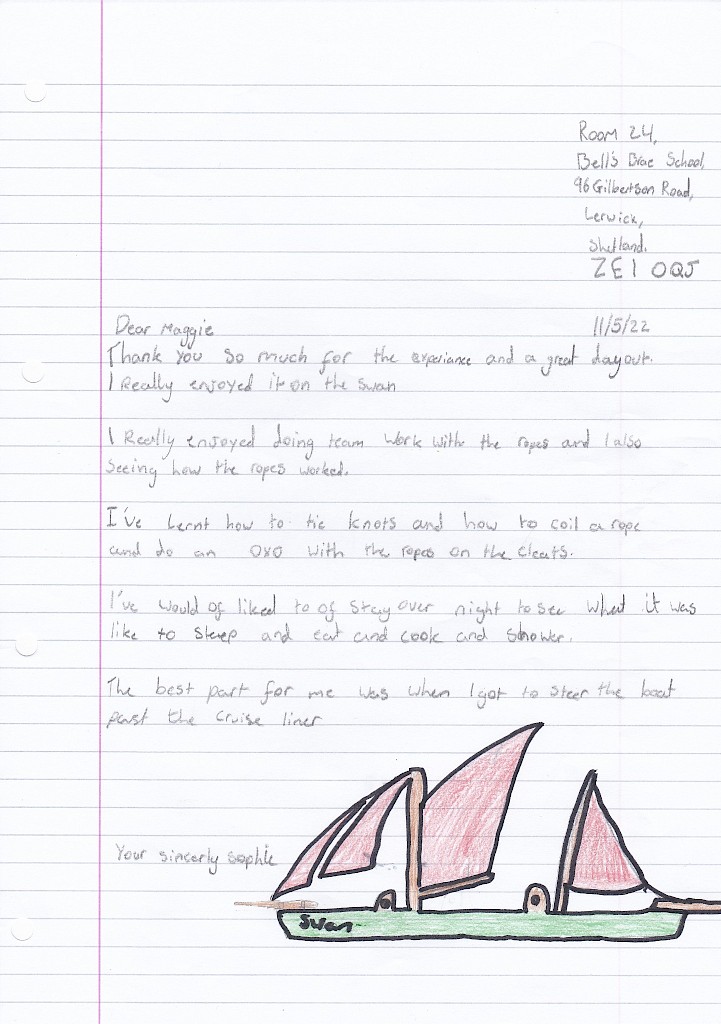 Room 24,
Bell's Brae School,
96 Gilbertson Road,
Lerwick,
Shetland.
ZE1 0QJ
Dear Maggie 11/5/22
Thank You so much for the experiance and a great day out.
I Really enjoyed it on the Swan
I Really enjoyed doing team work with the ropes and I also
Seeing how the ropes worked.
I've Lernt how to tie knots and how to coil a rope
and do an OXO with the ropes on the cleats.
I've would of liked to of stay over night to see what it was
like to sleep and eat and cook and shower.
The best part for me was when I got to steer the boat
past the cruise liner
Your sincerly Sophie
Swan